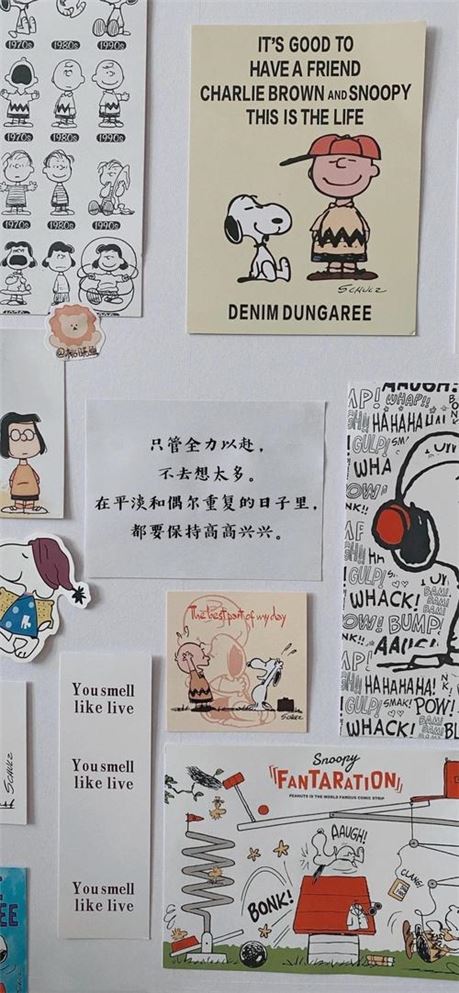 1970s 1980s 1990s
1970s 1980s 1990s
1970s 1980s 1990s
IT'S GOOD TO
HAVE A FRIEND
CHARLIE BROWN AND SNOOPY
THIS IS THE LIFE
SCHULZ
DENIM DUNGAREE
只管全力以赴，
不去想太多。
在平淡和偶尔重复的日子里，
都要保持高高兴兴。
AAUGH!
WHAP!!
HAHAHAHA!
GULP!
WHA
OW!
GULP!
WHACK!
BAM!
BAM!
BAM!
OW! BUMP!
HAHAHAHA!
GULP! SMAK! POW!
WHACK!
The best part of my day
SCHULZ
You smell
like live
You smell
like live
You smell
like live
SCHULZ
Snoopy
"FANTARATION"
PEANUTS IS THE WORLD FAMOUS COMIC STRIP
AAUGH!
CLANG!
BONK!